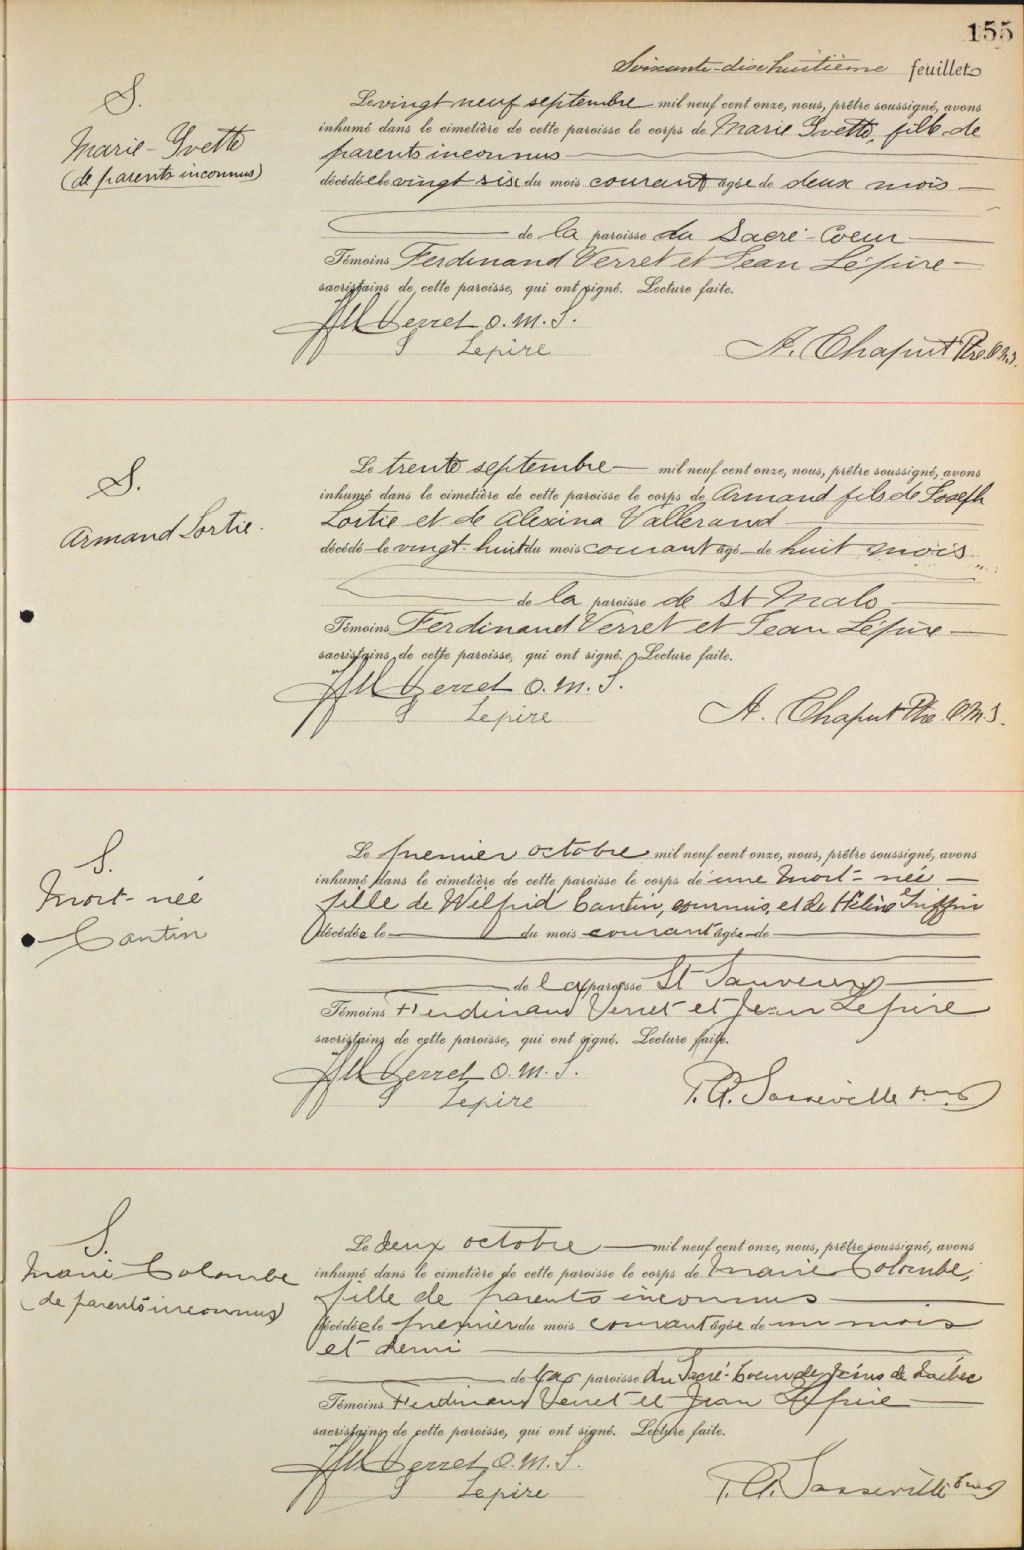 155
Soixante-dix-huitième feuillet
S.
Marie-Yvette
(de parents inconnus)
Le vingt neuf septembre mil neuf cent onze, nous, prêtre soussigné, avons
inhumé dans le cimetière de cette paroisse le corps de Marie Yvette, fille de
parents inconnus
décédée le vingt six du mois courant agée de deux mois
de la paroisse du Sacré-Coeur
Témoins Ferdinand Verret et Jean Lépire
sacristains de cette paroisse, qui ont signé. Lecture faite.
Verret O. M. S.
Lepire
A. Chaput Ptre O.M.I.
S.
Armand Lortie.
Le trente septembre mil neuf cent onze, nous, prêtre soussigné, avons
inhumé dans le cimetière de cette paroisse le corps de Armand fils de Joseph
Lortie et de Alexina Vallerand
décédé le vingt-huit du mois courant agé de huit mois
de la paroisse de St Malo
Témoins Ferdinand Verret et Jean Lépire
sacristains de cette paroisse, qui ont signé. Lecture faite.
Verret O. M. S.
Lepire
A. Chaput Ptre O.M.I.
S.
Mort-née
Cantin
Le premier octobre mil neuf cent onze, nous, prêtre soussigné, avons
inhumé dans le cimetière de cette paroisse le corps de une Mort-née
fille de Wilfrid Cantin, commis, et de Hélène Griffin
décédée le du mois courant agée de
de la paroisse St Sauveur
Témoins Ferdinand Verret et Jean Lepire
sacristains de cette paroisse, qui ont signé. Lecture faite.
Verret O. M. S.
Lepire
T. A. Sasseville
S.
Marie Colombe
(de parents inconnus)
Le deux octobre mil neuf cent onze, nous, prêtre soussigné, avons
inhumé dans le cimetière de cette paroisse le corps de Marie Colombe,
fille de parents inconnus
décédée le premier du mois courant agée de un mois
et demi
de la paroisse du Sacré-Coeur de Jésus de Québec
Témoins Ferdinand Verret et Jean Lepire
sacristains de cette paroisse, qui ont signé. Lecture faite.
Verret O. M. S.
Lepire
T. A. Sasseville